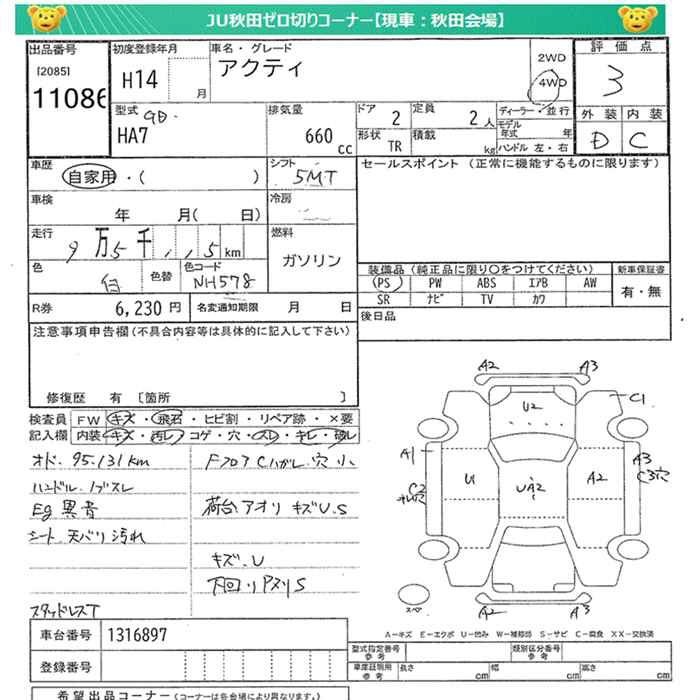 JU秋田ゼロ切りコーナー【現車：秋田会場】
出品番号 初度登録年月 車名・グレード 評価点
[2085]
11086
H14 月
アクティ
2WD
4WD
3
型式 排気量 ドア 2 定員 2人 ディーラー・並行
HA7
660 cc
形状 TR 積載 kg
モデル年式 年
ハンドル 左・右
外装 内装
D C
車歴 自家用・( )
シフト 5MT
セールスポイント (正常に機能するものに限ります)
車検 年 月( 日)
冷房
走行 9万5千 km
燃料 ガソリン
色 白 色替 色コード NH578
装備品(純正品に限り○をつけてください) 新車保証書
PS PW ABS エアB AW
SR ナビ TV カワ
有・無
R券 6,230円 名変通知期限 月 日
後日品
注意事項申告欄(不具合内容等は具体的に記入して下さい)
修復歴 有 [箇所 ]
検査員記入欄
FW キズ・飛石・ヒビ割・リペア跡・×要
内装 キズ・汚レ・コゲ・穴・スレ・キレ・破レ
オド. 95.131km
ハンドル.ノブスレ
Eg異音
シート.天バリ汚れ
スタッドレスT
フロアCハガレ.穴小
荷台アオリ キズU.S
キズ.U
下回リPヌリS
A2 A3
U2
C1
A1
U
UA2
A2
A3
C3穴
C2
スペア
A2 A3
A－キズ E－エクボ U－凹み W－補修跡 S－サビ C－腐食 XX－交換済
車台番号 1316897
登録番号
型式指定番号 参考 類別区分番号 参考
車庫証明用 参考 長さ cm 幅 cm 高さ cm
希望出品コーナー (コーナーは各会場により異なります。)